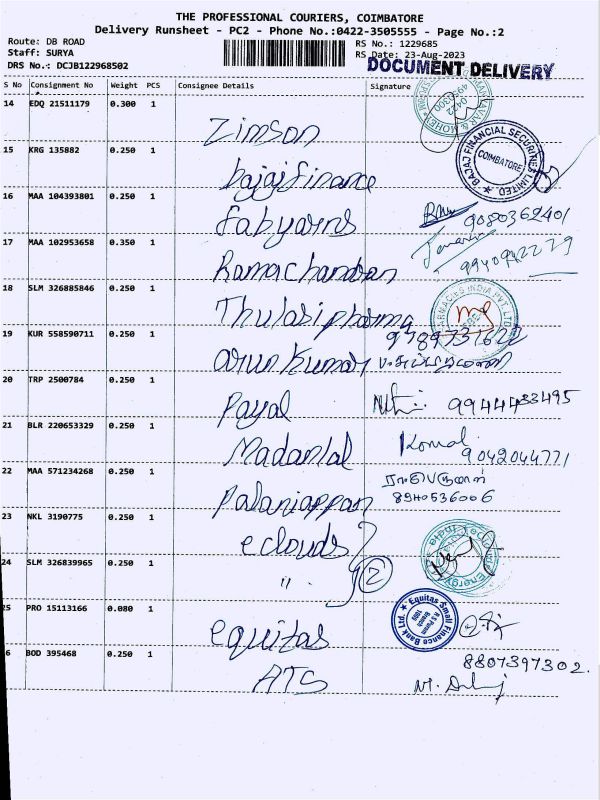 THE PROFESSIONAL COURIERS, COIMBATORE
Delivery Runsheet - PC2 - Phone No.:0422-3505555 - Page No.:2
Route: DB ROAD
Staff: SURYA
DRS No.: DCJB122968502
RS No.: 1229685
RS Date: 23-Aug-2023
DOCUMENT DELIVERY
S No Consignment No Weight PCS Consignee Details Signature
14 EDQ 21511179 0.300 1
Zimson
15 KRG 135882 0.250 1
bajajfinance
BAJAJ FINANCIAL SECURITIES LIMITED
COIMBATORE
16 MAA 104393801 0.250 1
fabyarns
9080362401
17 MAA 102953658 0.350 1
Ramachandran
9940942279
18 SLM 326885846 0.250 1
Thulasipharma
PHARMACIES INDIA PVT LTD
9789731622
19 KUR 558590711 0.250 1
arunkumar
20 TRP 2500784 0.250 1
Payal
9944433495
21 BLR 220653329 0.250 1
Madanlal
Komal
9042044771
22 MAA 571234268 0.250 1
Palaniappan
8940536006
23 NKL 3190775 0.250 1
eclouds
24 SLM 326839965 0.250 1
" 2
25 PRO 15113166 0.080 1
equitas
Equitas Small Finance Bank Ltd.
6 BOD 395468 0.250 1
ATS
8807397302.